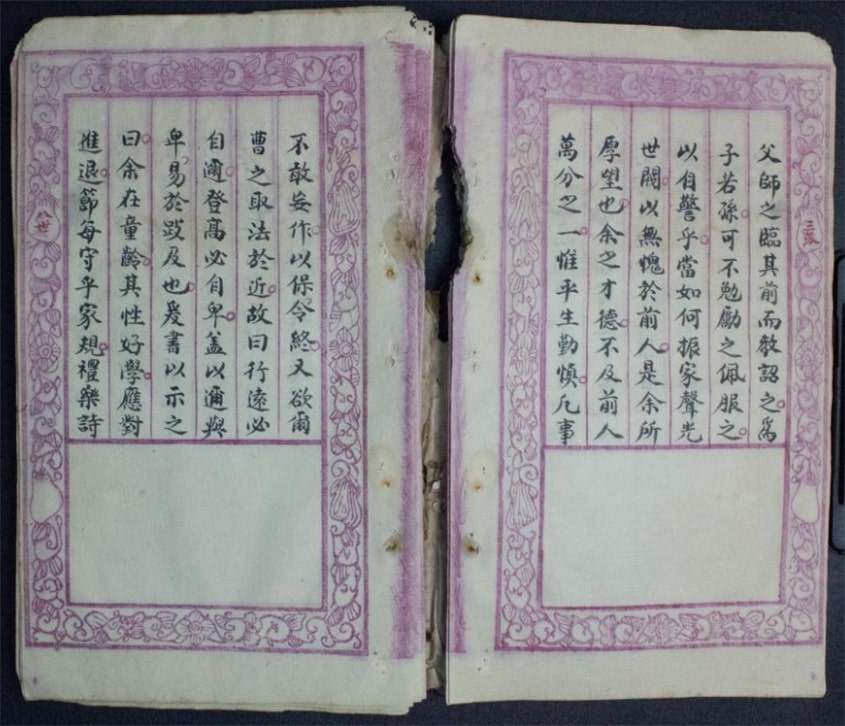 父師之臨其前而教詔之爲
子若孫可不勉勵之佩服之
以自警乎當如何振家聲光
世閥以無愧於前人是余所
厚望也余之才德不及前人
萬分之一惟平生勤慎凡事
不敢妄作以保令終又欲爾
曹之取法於近故曰行遠必
自邇登高必自卑盖以邇與
卑易於跂及也爰書以示之
曰余在童齡其性好學應對
進退節每守乎家規禮樂詩
八世